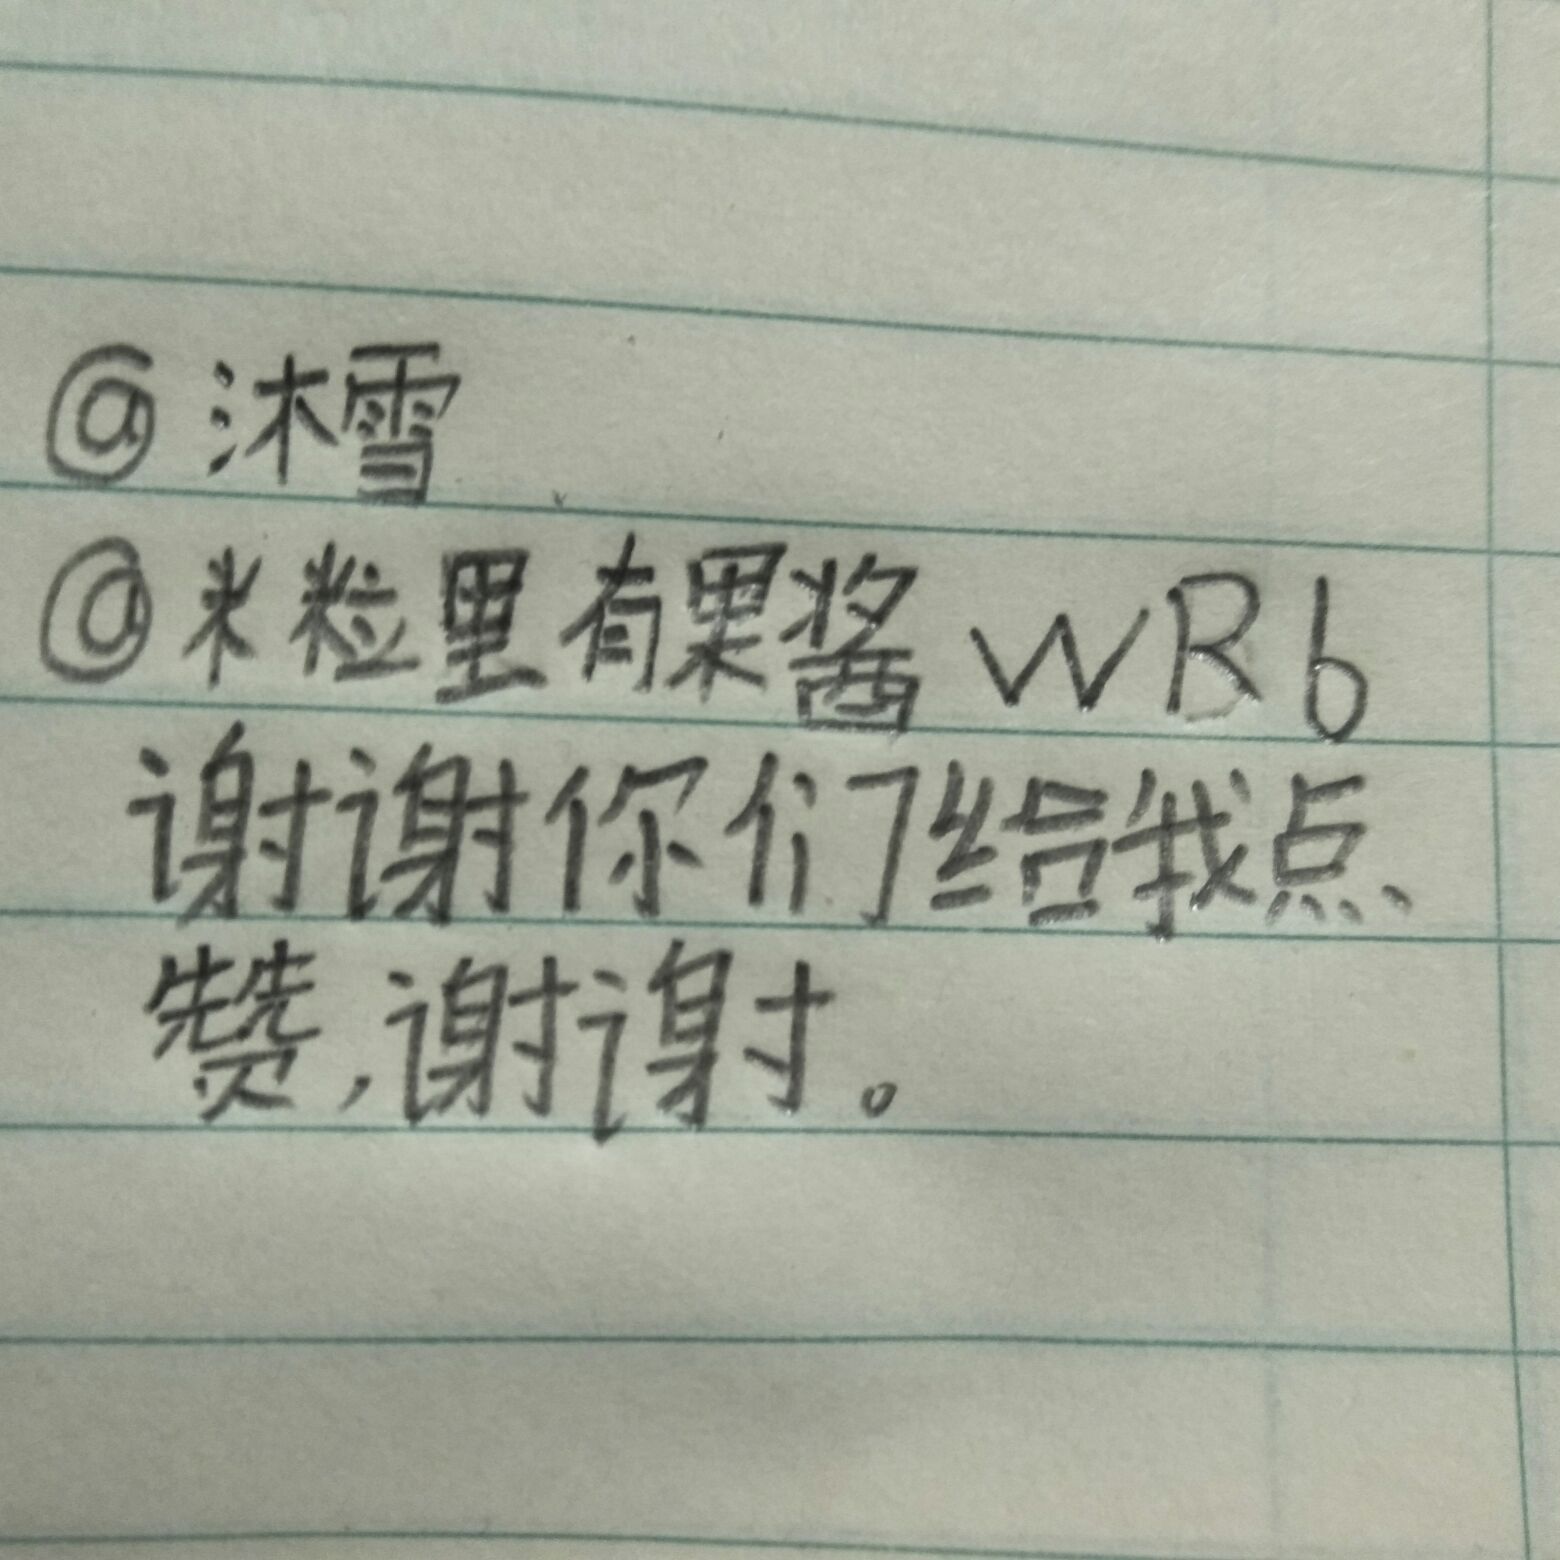 @沐雪
@米粒里有果酱WRb
谢谢你们给我点
赞,谢谢。